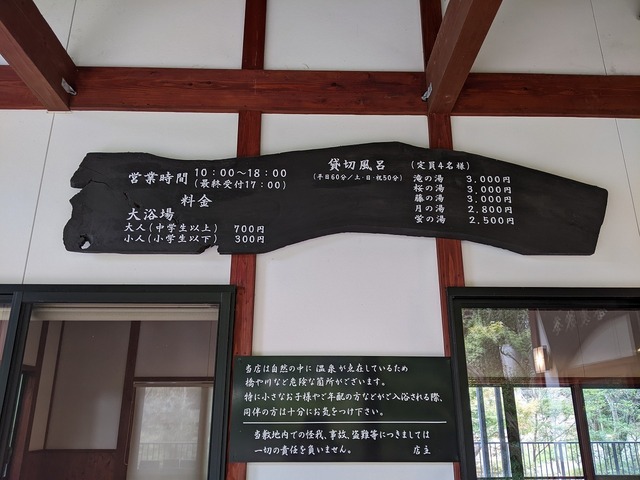 営業時間 10:00～18:00
(最終受付17:00)
料金
大浴場
大人(中学生以上) 700円
小人(小学生以下) 300円
貸切風呂 (定員4名様)
(平日60分/土・日・祝50分)
滝の湯 3,000円
桜の湯 3,000円
藤の湯 3,000円
月の湯 2,800円
蛍の湯 2,500円
当店は自然の中に温泉が点在しているため
橋や川など危険な箇所がございます。
特に小さなお子様やご年配の方などがご入浴される際、
同伴の方は十分にお気をつけ下さい。
当敷地内での怪我、事故、盗難等につきましては
一切の責任を負いません。 店主